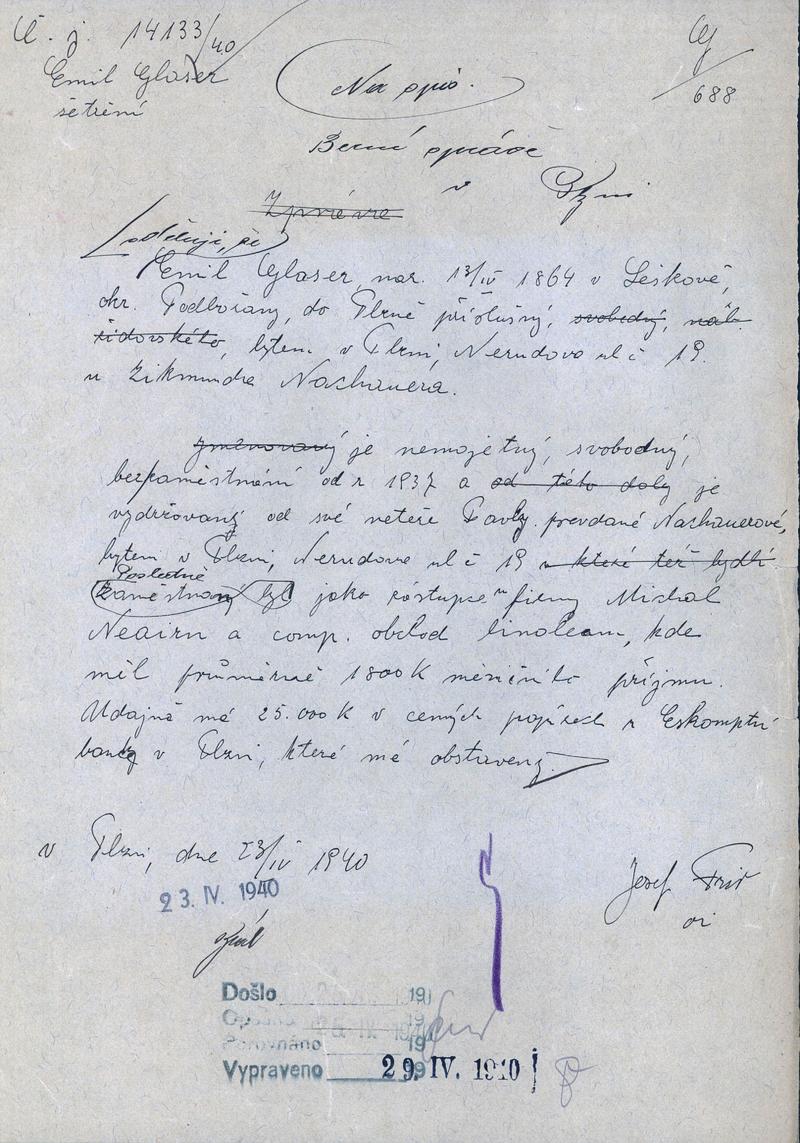 Č. j. 14133/40
Emil Glaser
šetření
Na opis.
G/688
Berní správě
v Plzni
Zpráva
sděluji, že
Emil Glaser, nar. 13/IV 1864 v Leškově,
okr. Podbořany, do Plzně příslušný, svobodný, náb.
židovského, bytem v Plzni, Nerudova ul č 19.
u Zikmunda Naschauera.
jmenovaný je nemajetný, svobodný,
bezzaměstnání od r 1937 a od této doby je
vydržovaný od své neteře Pavly provdané Naschauerové,
bytem v Plzni, Nerudova ul č 19 u které též bydlí
Posledně
zaměstnaný byl jako zástupce firmy Michal
a comp. obchod linoleam, kde
měl průměrně 1800 K měsíčního příjmu.
Údajně má 25.000 K v cenných papírech u Eskomptní
banky v Plzni, které má obstaveny.
v Plzni, dne 23/IV 1940
23. IV. 1940
Josef
Došlo 19
Opsáno 19
Porovnáno 19
Vypraveno 29. IV. 1940